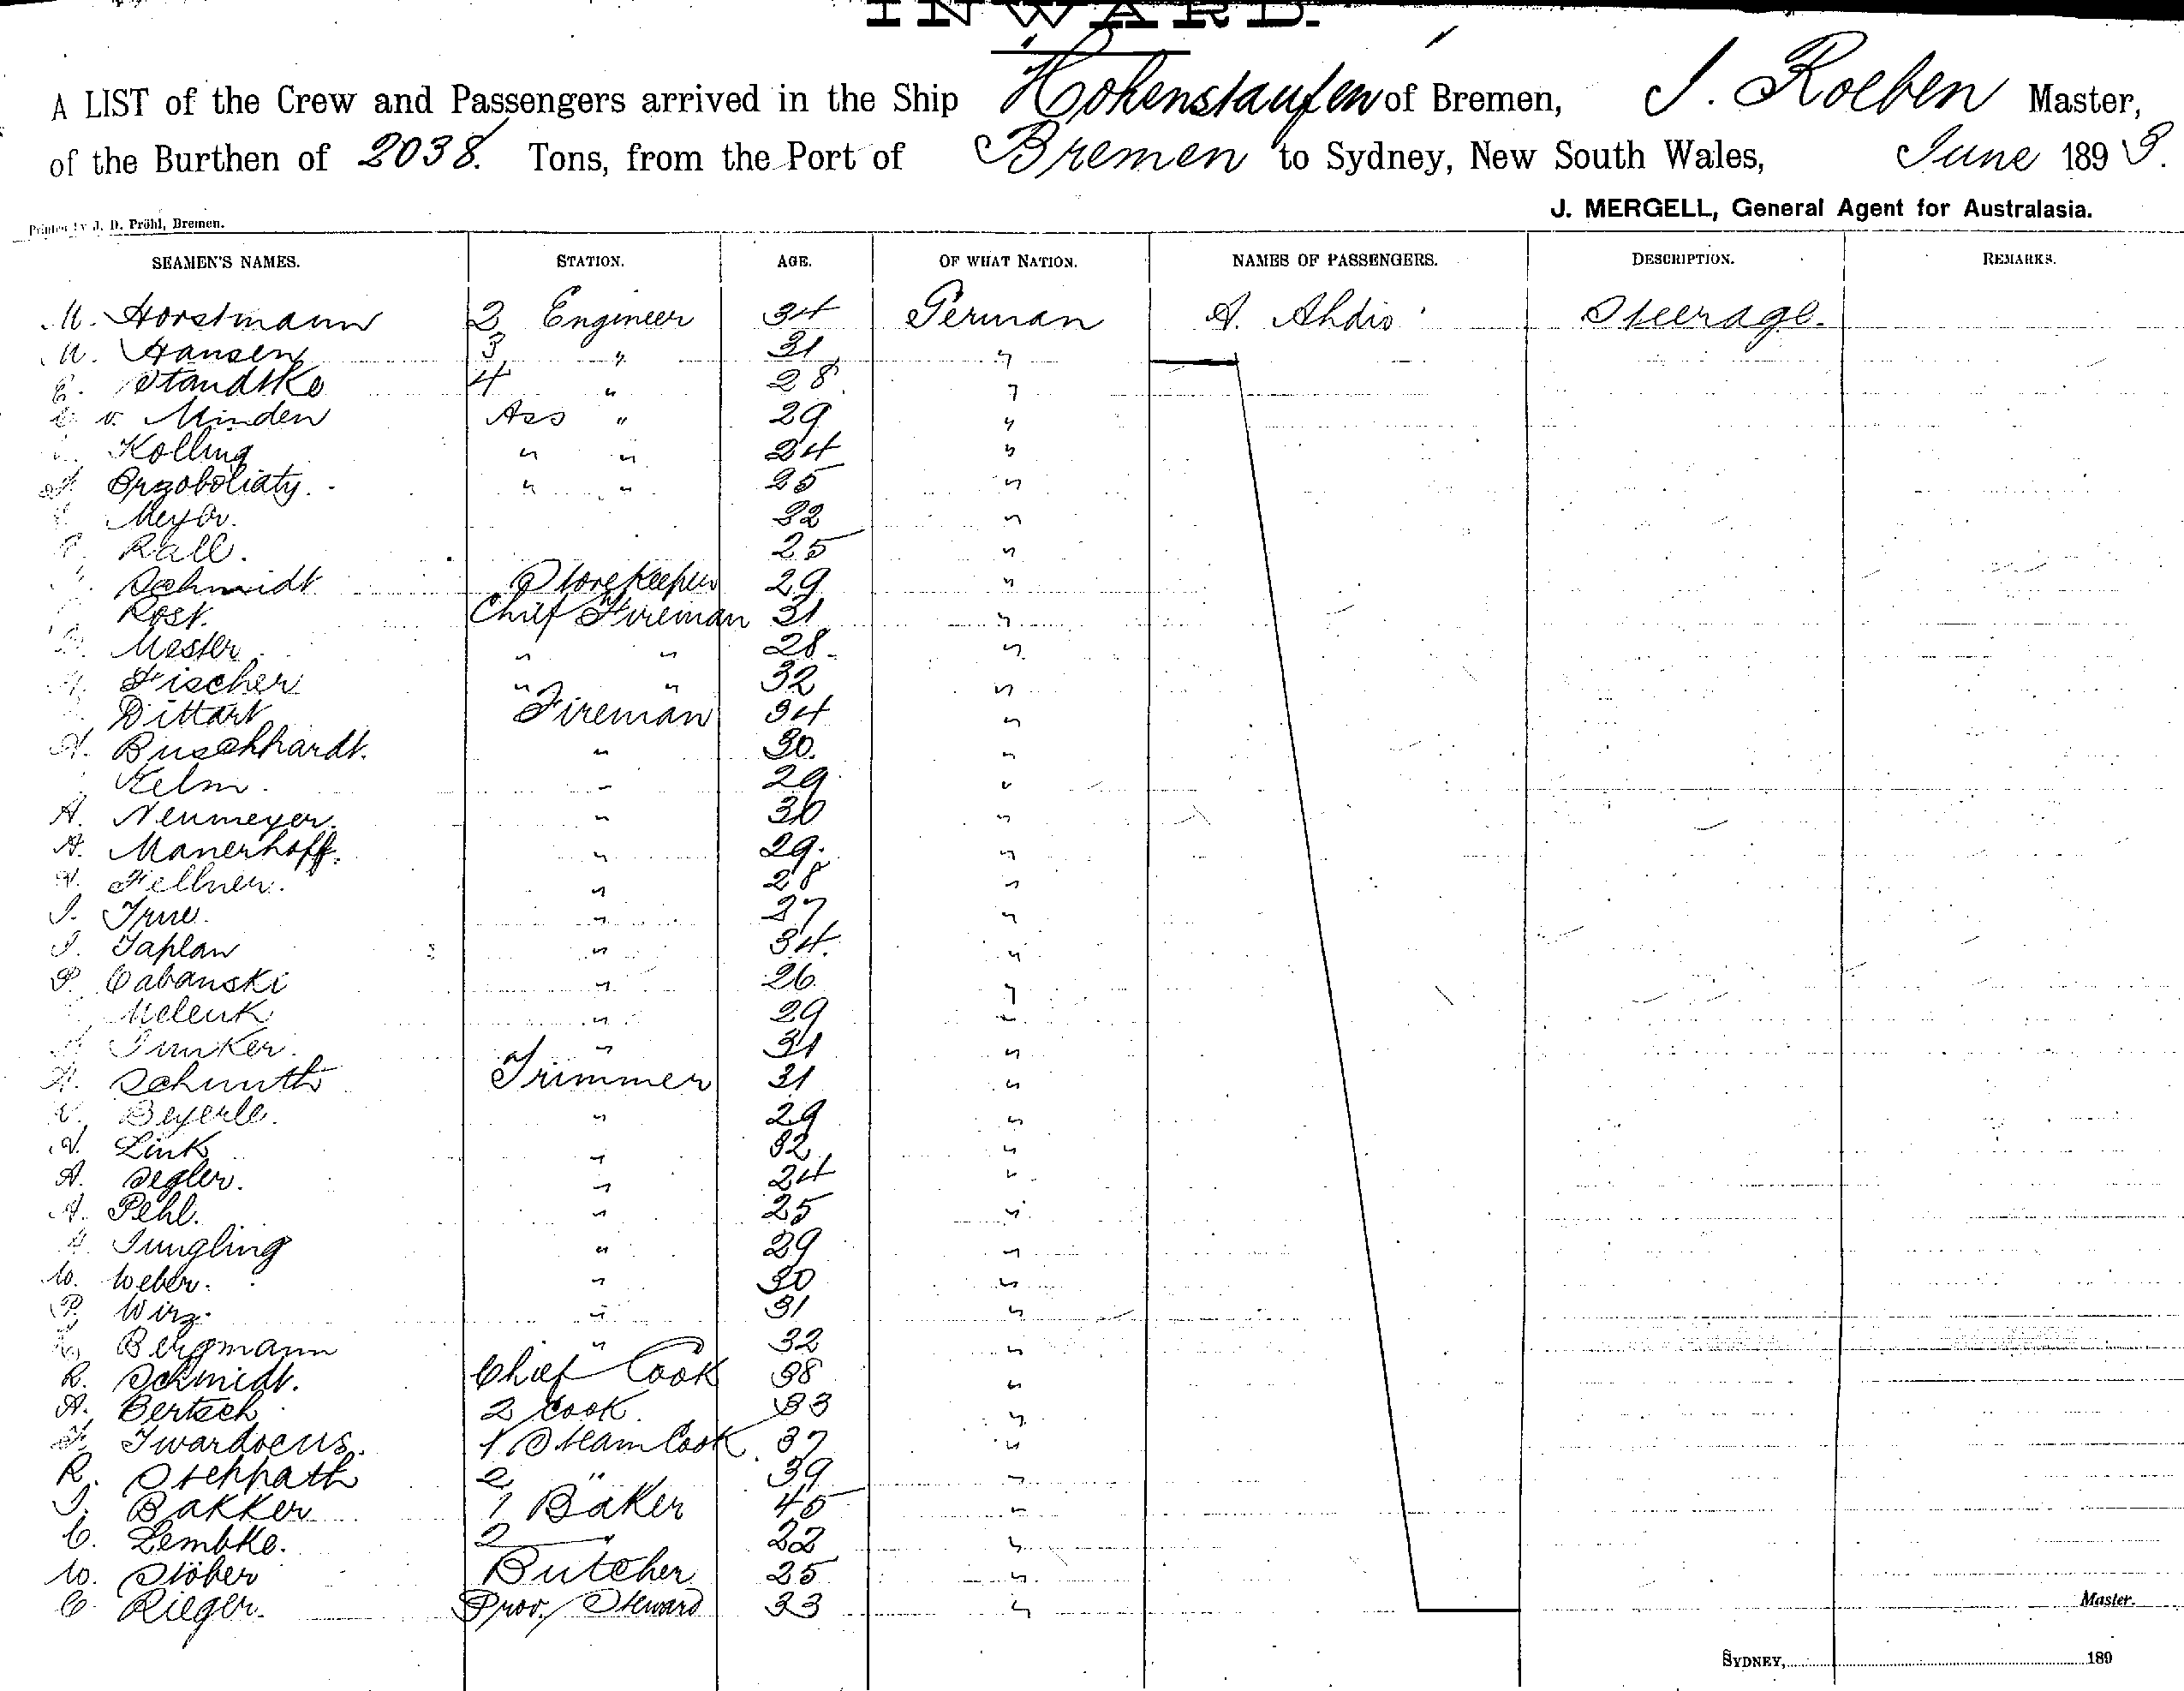 INWARD.
A LIST of the Crew and Passengers arrived in the Ship Hohenstaufen of Bremen, J. Roeben Master,
of the Burthen of 2038. Tons, from the Port of Bremen to Sydney, New South Wales, June 1893.
J. MERGELL, General Agent for Australasia.
Printed by J. D. Pröhl, Bremen.
SEAMEN'S NAMES. STATION. AGE. OF WHAT NATION. NAMES OF PASSENGERS. DESCRIPTION. REMARKS.
Horstmann 2 Engineer 34 German A. Ahdio Steerage.
Hansen 3 " 31 "
Standtke 4 " 28 "
v. Minden Ass " 29 "
Kolling " " 24 "
" " 25 "
Meyer. 32 "
Rall. 25 "
Schmidt Storekeeper 29 "
Rost. Chief Fireman 31 "
Mester " " 28 "
Fischer " " 32 "
Dittart Fireman 34 "
H. Buschhardt. " 30. "
Kelm. " 29 "
A. Neumeyer. " 30 "
A. Manerhoff. " 29. "
Fellner. " 28 "
J. " 27 "
J. Japlan " 34. "
P. Cabanski " 26 "
Melenk " 29 "
Junker. " 31 "
A. Schmuth Trimmer 31 "
Beyerle. " 29 "
Link " 32 "
A. Segler. " 24 "
A. Pehl. " 25 "
Jungling " 29 "
W. Weber. " 30 "
P. Wirz. " 31 "
Bergmann " 32 "
R. Schmidt. Chief Cook 38 "
A. Bertsch 2 Cook. 33 "
1 Steam Cook 37 "
R. Stehpath 2 " 39 "
J. Bakker 1 Baker 45 "
C. Lembke. 2 " 22 "
W. Stöber Butcher 25 "
C. Rieger. Prov. Steward 33 "
Master.
SYDNEY, 189